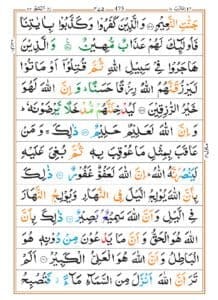 جَنّٰتِ النَّعِيْمِ ۝ وَالَّذِيْنَ كَفَرُوْا وَكَذَّبُوْا بِاٰيٰتِنَا
فَاُولٰٓئِكَ لَهُمْ عَذَابٌ مُّهِيْنٌ ۝ وَالَّذِيْنَ
هَاجَرُوْا فِيْ سَبِيْلِ اللّٰهِ ثُمَّ قُتِلُوْٓا اَوْ مَاتُوْا
لَيَرْزُقَنَّهُمُ اللّٰهُ رِزْقًا حَسَنًا ؕ وَاِنَّ اللّٰهَ لَهُوَ
خَيْرُ الرّٰزِقِيْنَ ۝ لَيُدْخِلَنَّهُمْ مُّدْخَلًا يَّرْضَوْنَهٗ ؕ
وَاِنَّ اللّٰهَ لَعَلِيْمٌ حَلِيْمٌ ۝ ذٰلِكَ ۚ وَمَنْ
عَاقَبَ بِمِثْلِ مَا عُوْقِبَ بِهٖ ثُمَّ بُغِيَ عَلَيْهِ
لَيَنْصُرَنَّهُ اللّٰهُ ؕ اِنَّ اللّٰهَ لَعَفُوٌّ غَفُوْرٌ ۝ ذٰلِكَ
بِاَنَّ اللّٰهَ يُوْلِجُ الَّيْلَ فِي النَّهَارِ وَيُوْلِجُ النَّهَارَ
فِي الَّيْلِ وَاَنَّ اللّٰهَ سَمِيْعٌۢ بَصِيْرٌ ۝ ذٰلِكَ بِاَنَّ
اللّٰهَ هُوَ الْحَقُّ وَاَنَّ مَا يَدْعُوْنَ مِنْ دُوْنِهٖ هُوَ
الْبَاطِلُ وَاَنَّ اللّٰهَ هُوَ الْعَلِيُّ الْكَبِيْرُ ۝ اَلَمْ
تَرَ اَنَّ اللّٰهَ اَنْزَلَ مِنَ السَّمَآءِ مَآءً ؗ فَتُصْبِحُ